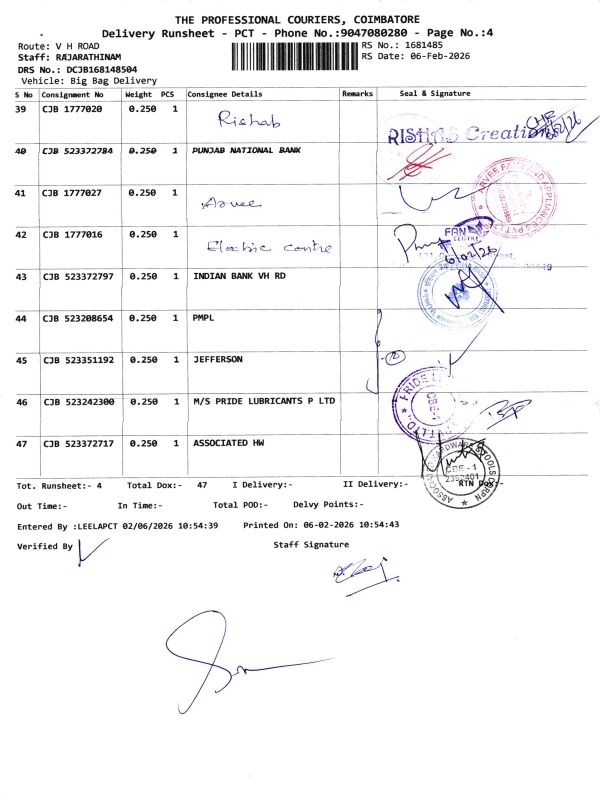 THE PROFESSIONAL COURIERS, COIMBATORE
Delivery Runsheet - PCT - Phone No.:9047080280 - Page No.:4
Route: V H ROAD
RS No.: 1681485
Staff: RAJARATHINAM
RS Date: 06-Feb-2026
DRS No.: DCJB168148504
Vehicle: Big Bag Delivery
S No Consignment No Weight PCS Consignee Details Remarks Seal & Signature
39 CJB 1777020 0.250 1 Rishab
RISHAB Creations
40 CJB 523372784 0.250 1 PUNJAB NATIONAL BANK
41 CJB 1777027 0.250 1 Arvee
42 CJB 1777016 0.250 1 Electric centre
FAN CENTRE
6/02/26
43 CJB 523372797 0.250 1 INDIAN BANK VH RD
44 CJB 523208654 0.250 1 PMPL
45 CJB 523351192 0.250 1 JEFFERSON
46 CJB 523242300 0.250 1 M/S PRIDE LUBRICANTS P LTD
PRIDE
CBE-1
47 CJB 523372717 0.250 1 ASSOCIATED HW
CBE - 1
2392401
Tot. Runsheet:- 4 Total Dox:- 47 I Delivery:- II Delivery:- RTN Dox:-
Out Time:- In Time:- Total POD:- Delvy Points:-
Entered By :LEELAPCT 02/06/2026 10:54:39 Printed On: 06-02-2026 10:54:43
Verified By Staff Signature